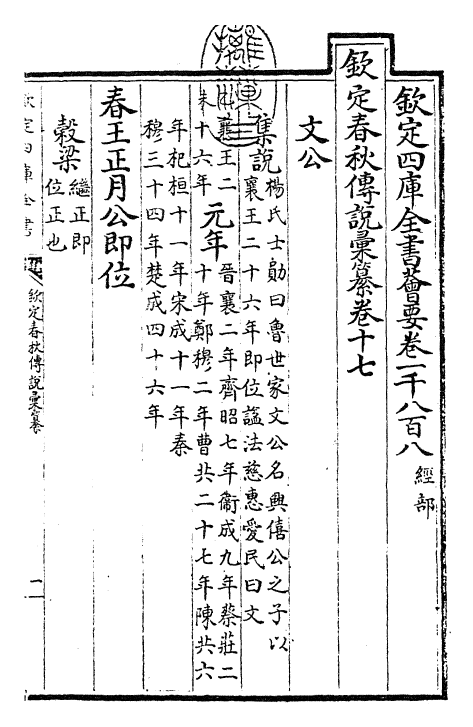 欽定四庫全書薈要卷一千八百八 經部
欽定春秋傳說彙纂卷十七
文公
集說 楊氏士勛曰魯世家文公名興僖公之子以
襄王二十六年即位謚法慈惠愛民曰文
襄王二
未十六年
元年 晉襄二年齊昭七年衞成九年蔡莊二
十年鄭穆二年曹共二十七年陳共六
年杞桓十一年宋成十一年秦
穆三十四年楚成四十六年
春王正月公即位
穀梁 繼正即
位正也
欽定四庫全書
欽定春秋傳說彙纂